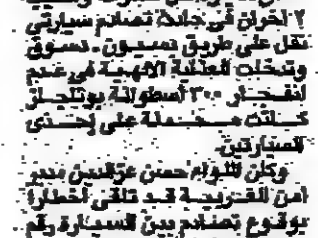 ٢ آخران في حادث تصادم سيارتي
نقل على طريق دسوق
وتدخلت العناية الالهية في عدم
انفجار ٣٠٠ أسطوانة بوتاجاز
كانت محملة على إحدى
السيارتين.
وكان اللواء حسن مدير
أمن الغربية قد تلقى اخطارا
بوقوع تصادم بين السيارة رقم